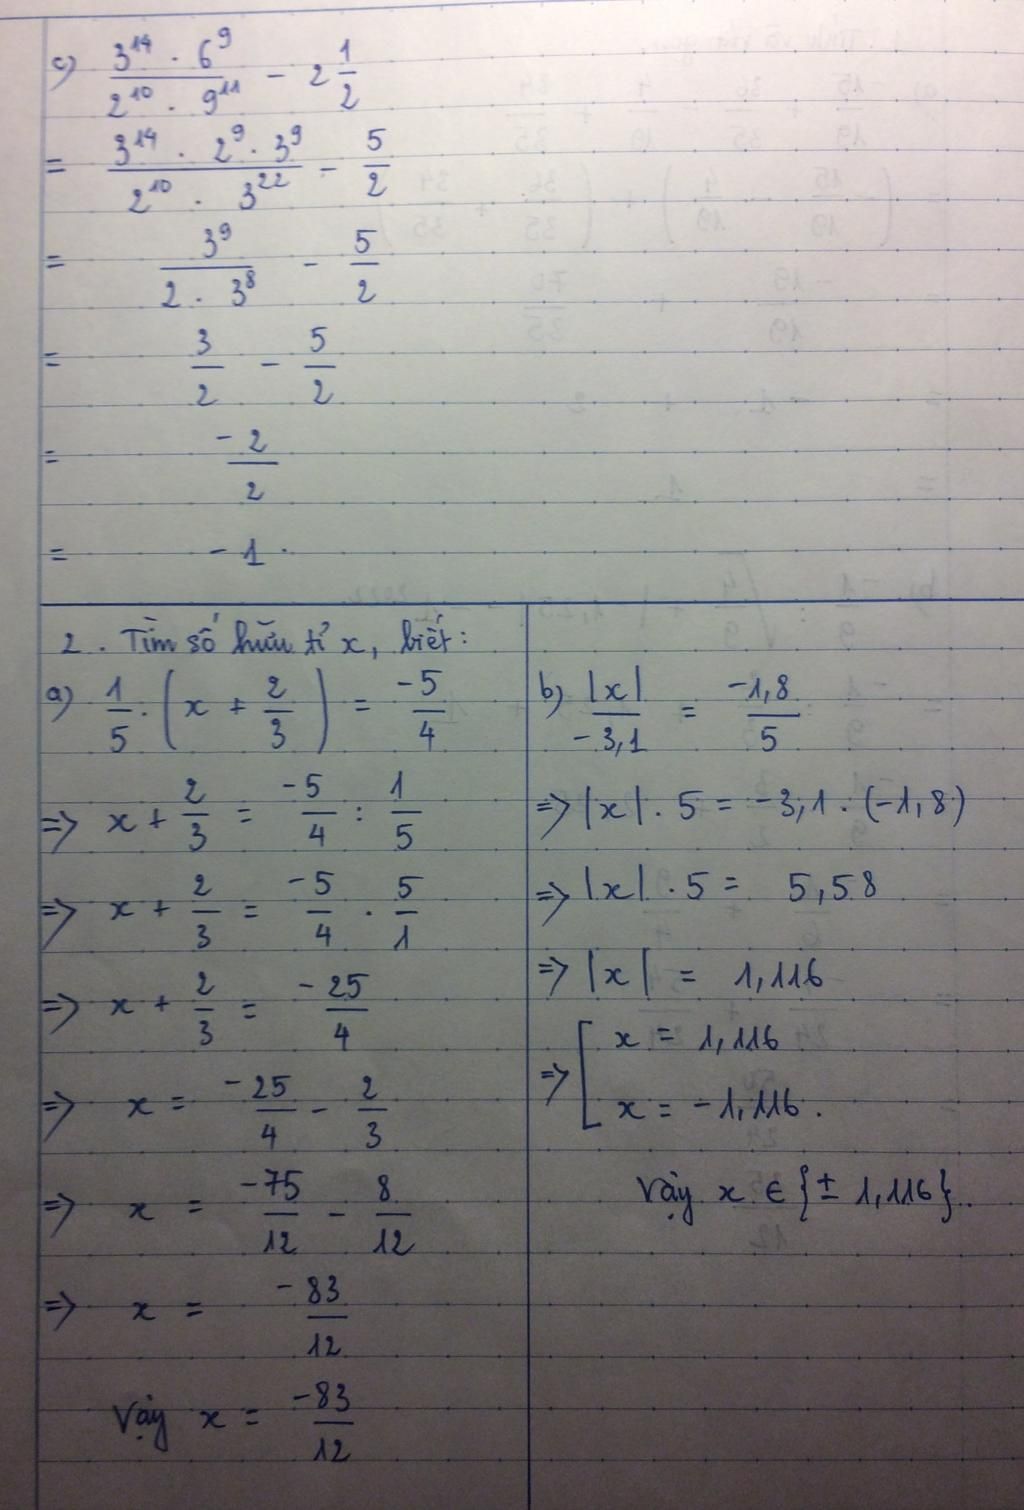 c) \frac{3^{14} . 6^9}{2^{10} . 9^{11}} - 2\frac{1}{2}
= \frac{3^{14} . 2^9 . 3^9}{2^{10} . 3^{22}} - \frac{5}{2}
= \frac{3^9}{2 . 3^8} - \frac{5}{2}
= \frac{3}{2} - \frac{5}{2}
= \frac{-2}{2}
= -1.
2. Tìm số hữu tỉ x, biết:
a) \frac{1}{5} . (x + \frac{2}{3}) = \frac{-5}{4}
=> x + \frac{2}{3} = \frac{-5}{4} : \frac{1}{5}
=> x + \frac{2}{3} = \frac{-5}{4} . \frac{5}{1}
=> x + \frac{2}{3} = \frac{-25}{4}
=> x = \frac{-25}{4} - \frac{2}{3}
=> x = \frac{-75}{12} - \frac{8}{12}
=> x = \frac{-83}{12}
Vậy x = \frac{-83}{12}
b) \frac{|x|}{-3,1} = \frac{-1,8}{5}
=> |x| . 5 = -3,1 . (-1,8)
=> |x| . 5 = 5,58
=> |x| = 1,116
=> [ x = 1,116
x = -1,116.
Vậy x ∈ {± 1,116}.